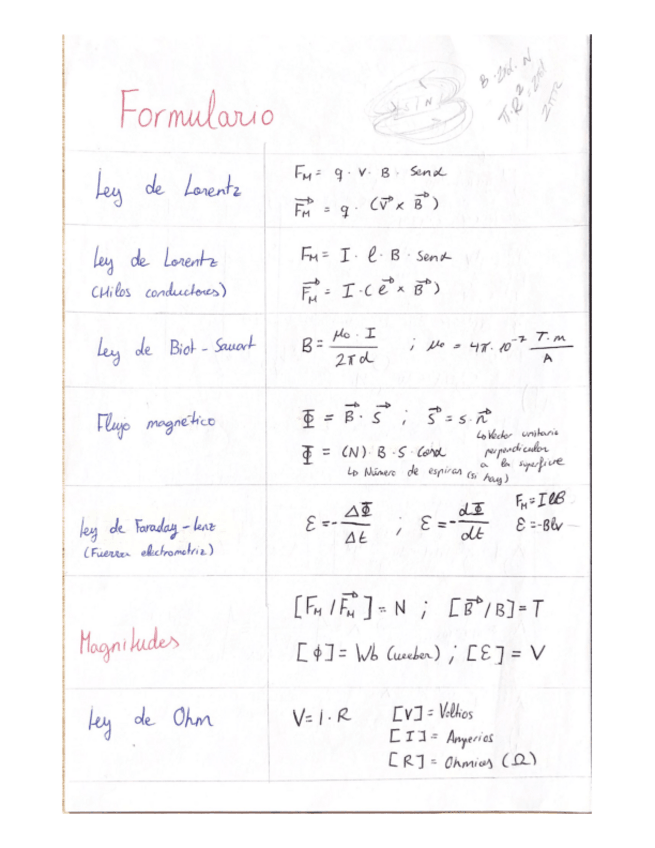 Formulario
B · 2πd · N
π · R² · 2πd
2πR
Ley de Lorentz
F_M = q · v · B · Senα
F_M⃗ = q · (v⃗ x B⃗)
Ley de Lorentz
(Hilos conductores)
F_M = I · l · B · Senα
F_M⃗ = I · (l⃗ x B⃗)
Ley de Biot - Savart
B = μ₀ · I / 2πd ; μ₀ = 4π · 10⁻⁷ T · m / A
Flujo magnético
Φ = B⃗ · S⃗ ; S⃗ = s · n⃗
↳ Vector unitario
perpendicular
a la superficie
Φ = (N) · B · S · Cosα
↳ Número de espiras (si hay)
Ley de Faraday - Lenz
(Fuerza electromotriz)
Ɛ = - ΔΦ / Δt ; Ɛ = - dΦ / dt
F_M = I l B
Ɛ = -Blv
Magnitudes
[F_M / F_M⃗] = N ; [B⃗ / B] = T
[ɸ] = Wb (weeber) ; [Ɛ] = V
Ley de Ohm
V = I · R
[V] = Voltios
[I] = Amperios
[R] = Ohmios (Ω)